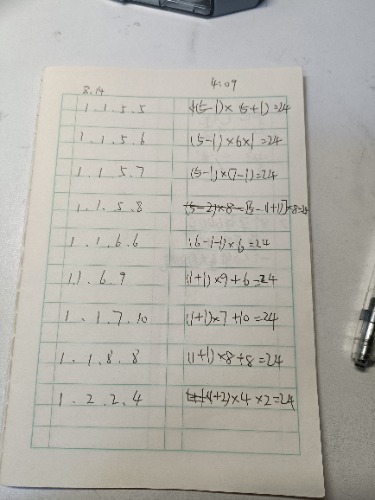 8.14 4:09
1.1.5.5 (5-1)×(5+1)=24
1.1.5.6 (5-1)×6×1=24
1.1.5.7 (5-1)×(7-1)=24
1.1.5.8 [5-(1+1)]×8=24
1.1.6.6 (6-1-1)×6=24
1.1.6.9 (1+1)×9+6=24
1.1.7.10 (1+1)×7+10=24
1.1.8.8 (1+1)×8+8=24
1.2.2.4 (1+2)×4×2=24